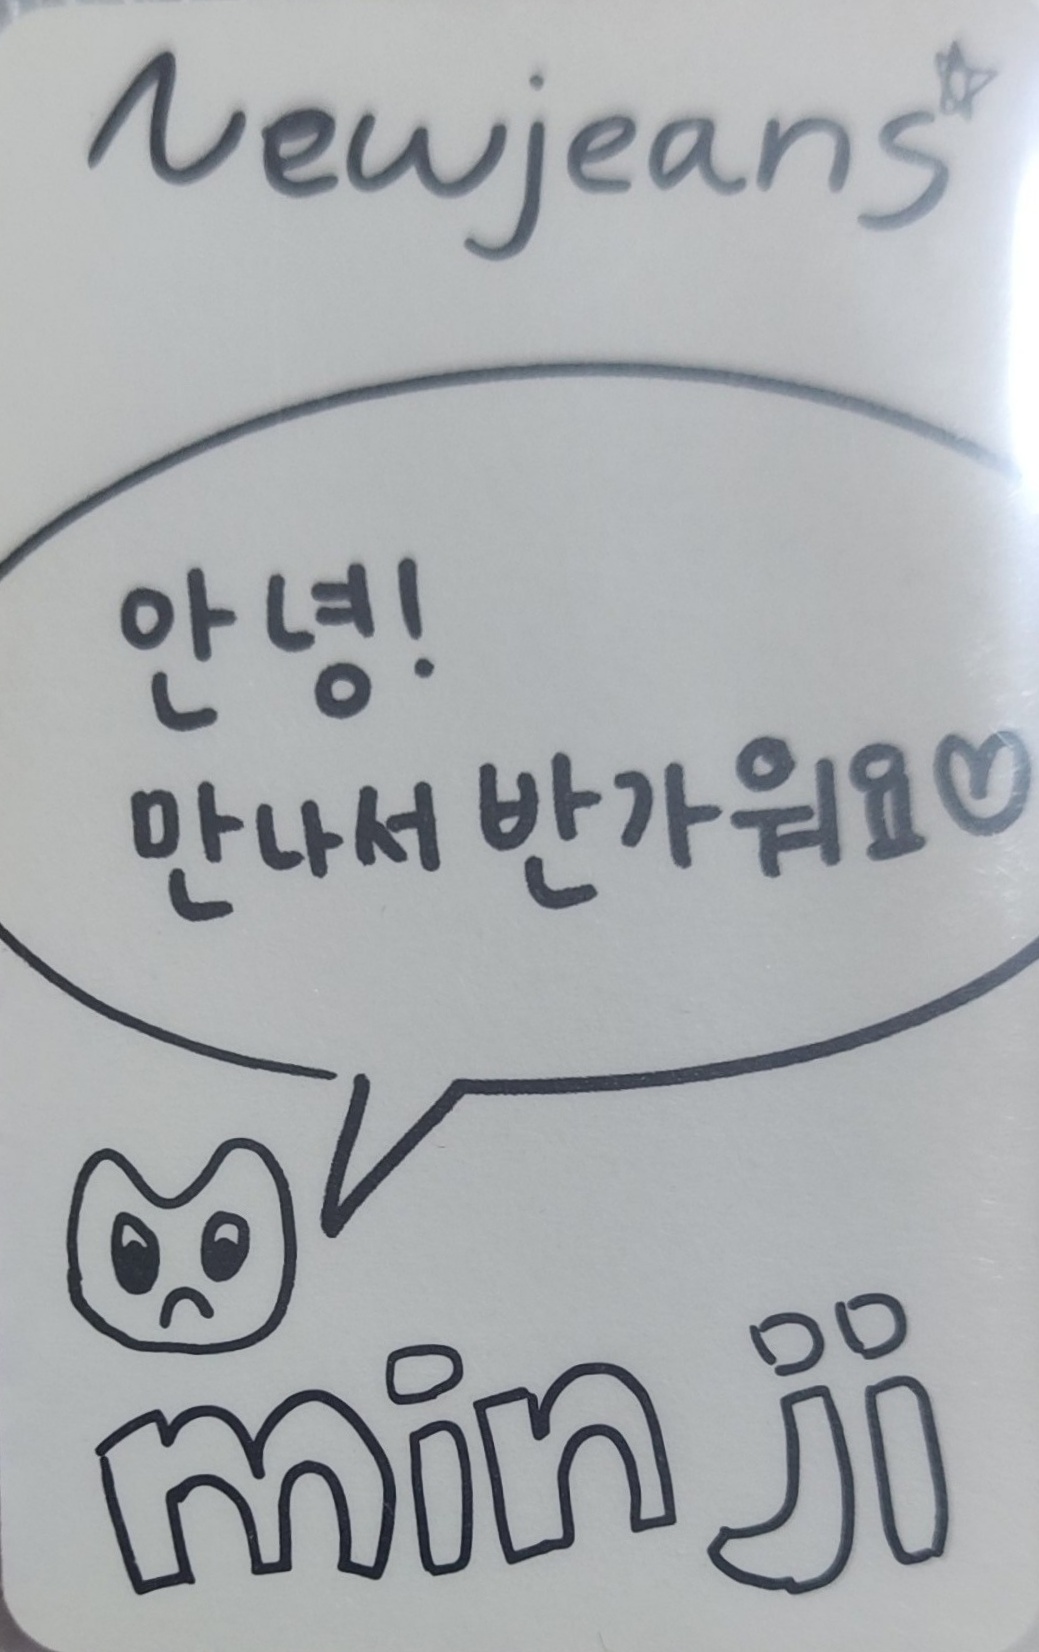 Newjeans
안녕!
만나서 반가워요♡
minji